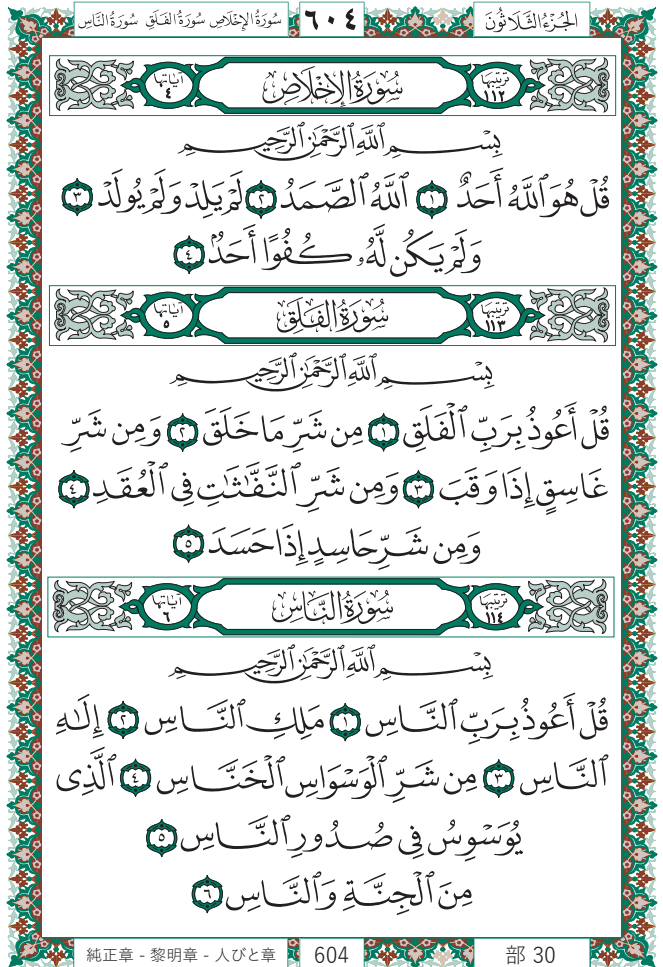 الجُزْءُ الثَّلَاثُونَ
٦٠٤
سُورَةُ الإِخْلَاصِ سُورَةُ الفَلَقِ سُورَةُ النَّاسِ
تَرْتِيبُهَا ١١٢
سُورَةُ الإِخْلَاصِ
آيَاتُهَا ٤
بِسْمِ ٱللَّهِ ٱلرَّحْمَٰنِ ٱلرَّحِيمِ
قُلْ هُوَ ٱللَّهُ أَحَدٌ ١ ٱللَّهُ ٱلصَّمَدُ ٢ لَمْ يَلِدْ وَلَمْ يُولَدْ ٣
وَلَمْ يَكُن لَّهُۥ كُفُوًا أَحَدٌۢ ٤
تَرْتِيبُهَا ١١٣
سُورَةُ الفَلَقِ
آيَاتُهَا ٥
بِسْمِ ٱللَّهِ ٱلرَّحْمَٰنِ ٱلرَّحِيمِ
قُلْ أَعُوذُ بِرَبِّ ٱلْفَلَقِ ١ مِن شَرِّ مَا خَلَقَ ٢ وَمِن شَرِّ
غَاسِقٍ إِذَا وَقَبَ ٣ وَمِن شَرِّ ٱلنَّفَّٰثَٰتِ فِى ٱلْعُقَدِ ٤
وَمِن شَرِّ حَاسِدٍ إِذَا حَسَدَ ٥
تَرْتِيبُهَا ١١٤
سُورَةُ النَّاسِ
آيَاتُهَا ٦
بِسْمِ ٱللَّهِ ٱلرَّحْمَٰنِ ٱلرَّحِيمِ
قُلْ أَعُوذُ بِرَبِّ ٱلنَّاسِ ١ مَلِكِ ٱلنَّاسِ ٢ إِلَٰهِ
ٱلنَّاسِ ٣ مِن شَرِّ ٱلْوَسْوَاسِ ٱلْخَنَّاسِ ٤ ٱلَّذِى
يُوَسْوِسُ فِى صُدُورِ ٱلنَّاسِ ٥
مِنَ ٱلْجِنَّةِ وَٱلنَّاسِ ٦
純正章 - 黎明章 - 人びと章
604
部 30